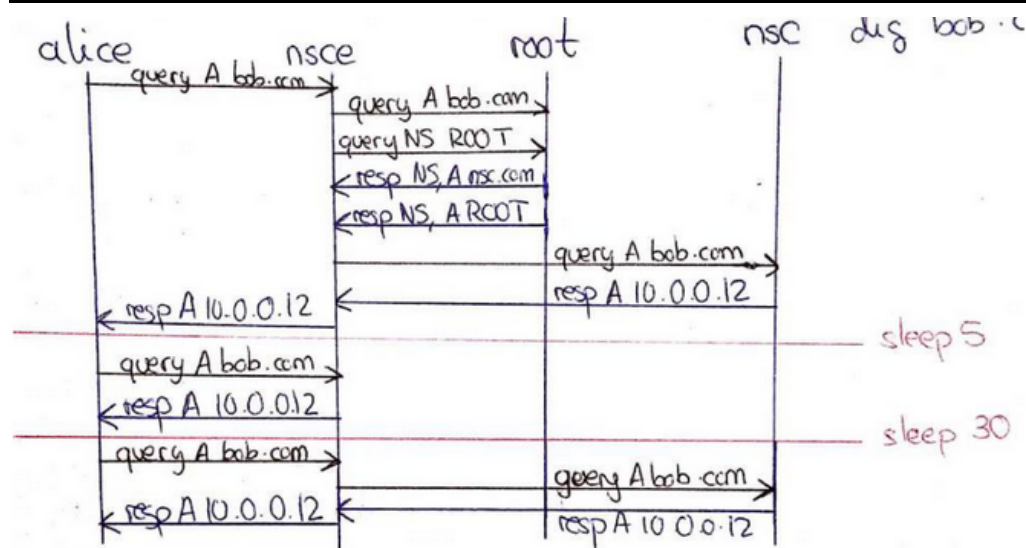 alice nsce root nsc dig bob.c
query A bob.com
query A bob.com
query NS ROOT
resp NS, A nsc.com
resp NS, A ROOT
query A bob.com
resp A 10.0.0.12
resp A 10.0.0.12
sleep 5
query A bob.com
resp A 10.0.0.12
sleep 30
query A bob.com
query A bob.com
resp A 10.0.0.12
resp A 10 0.0.12